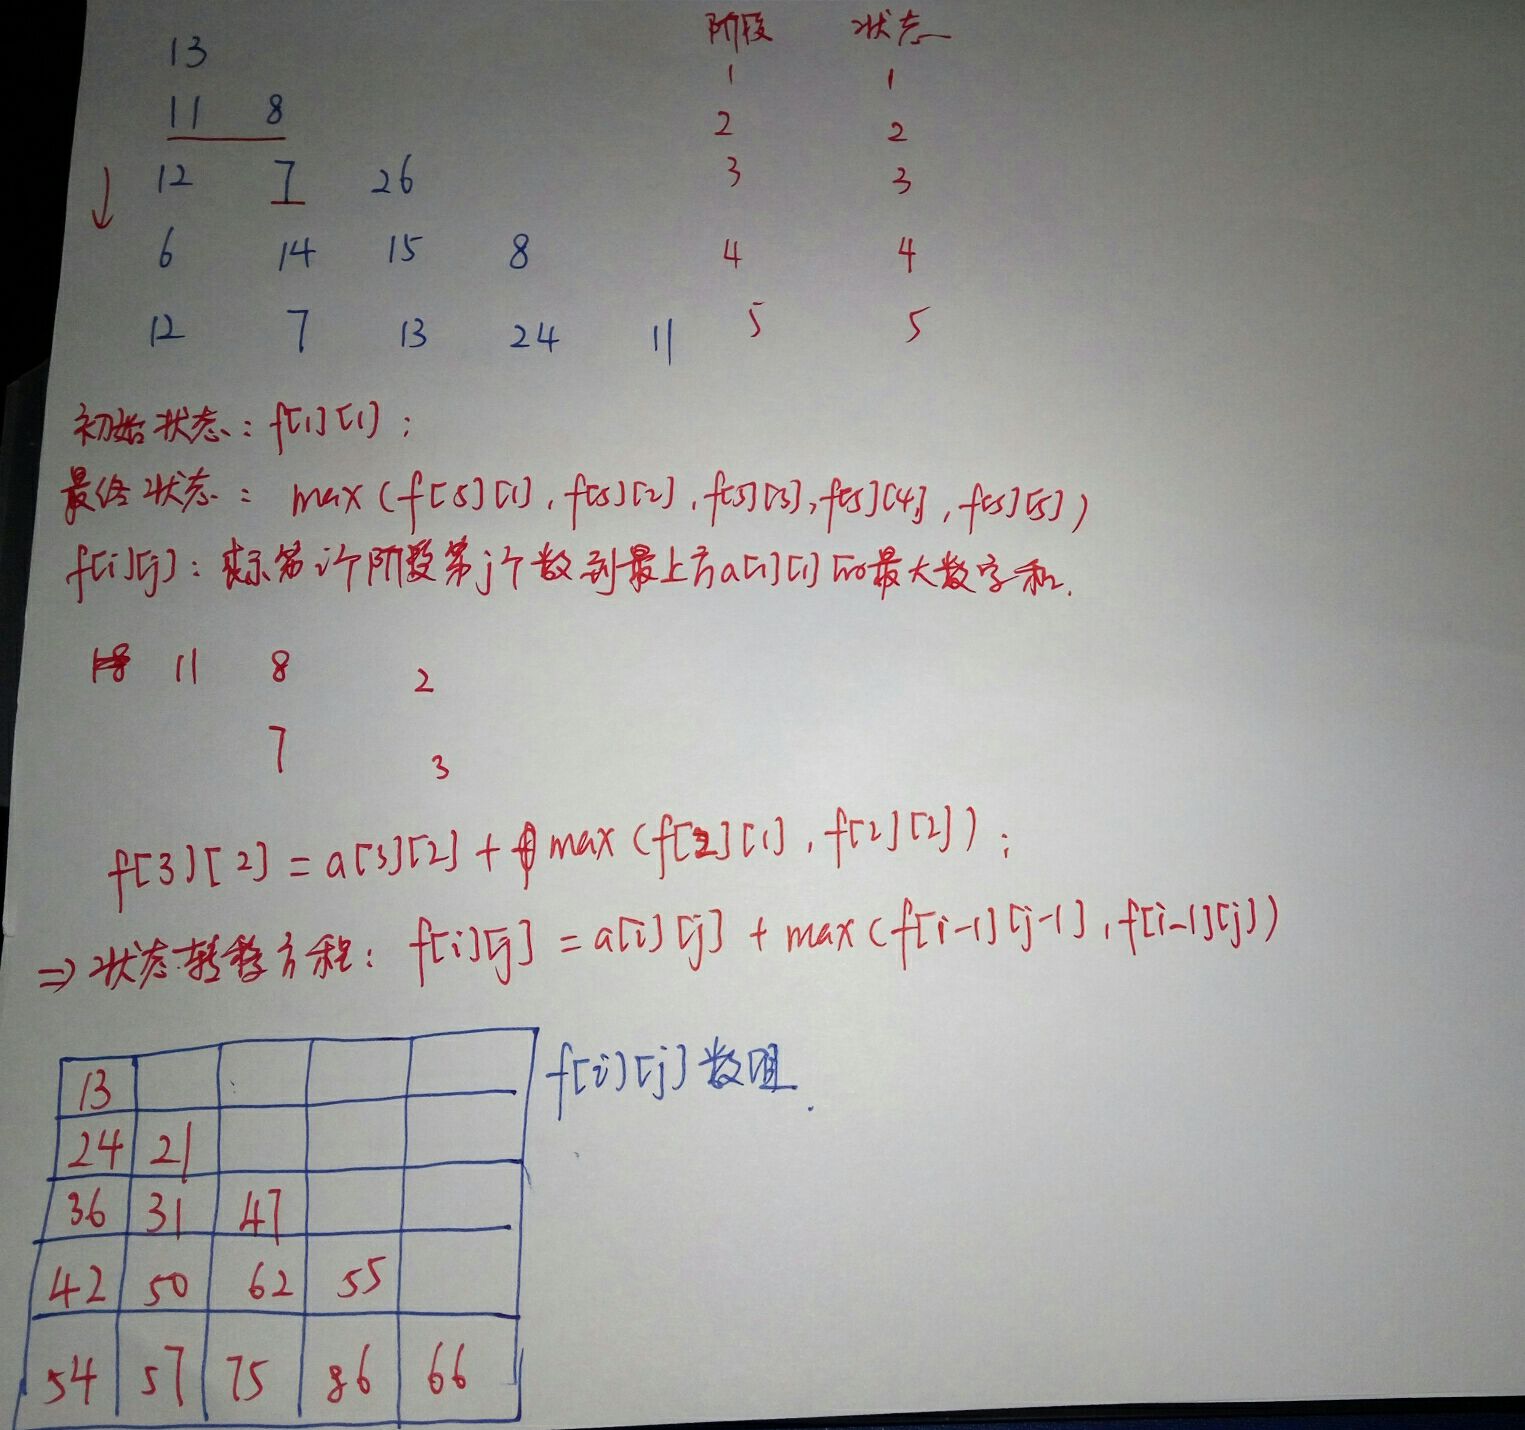 阶段 状态
13 1 1
11 8 2 2
12 7 26 3 3
6 14 15 8 4 4
12 7 13 24 11 5 5
初始状态：f[1][1]；
最终状态：max(f[5][1],f[5][2],f[5][3],f[5][4],f[5][5])
f[i][j]：表示第i个阶段第j个数到最上方a[1][1]的最大数字和.
11 8 2
7 3
f[3][2]=a[3][2]+max(f[2][1],f[2][2])；
⇒状态转移方程：f[i][j]=a[i][j]+max(f[i-1][j-1],f[i-1][j])
f[i][j]数组.
13
24 21
36 31 47
42 50 62 55
54 57 75 86 66